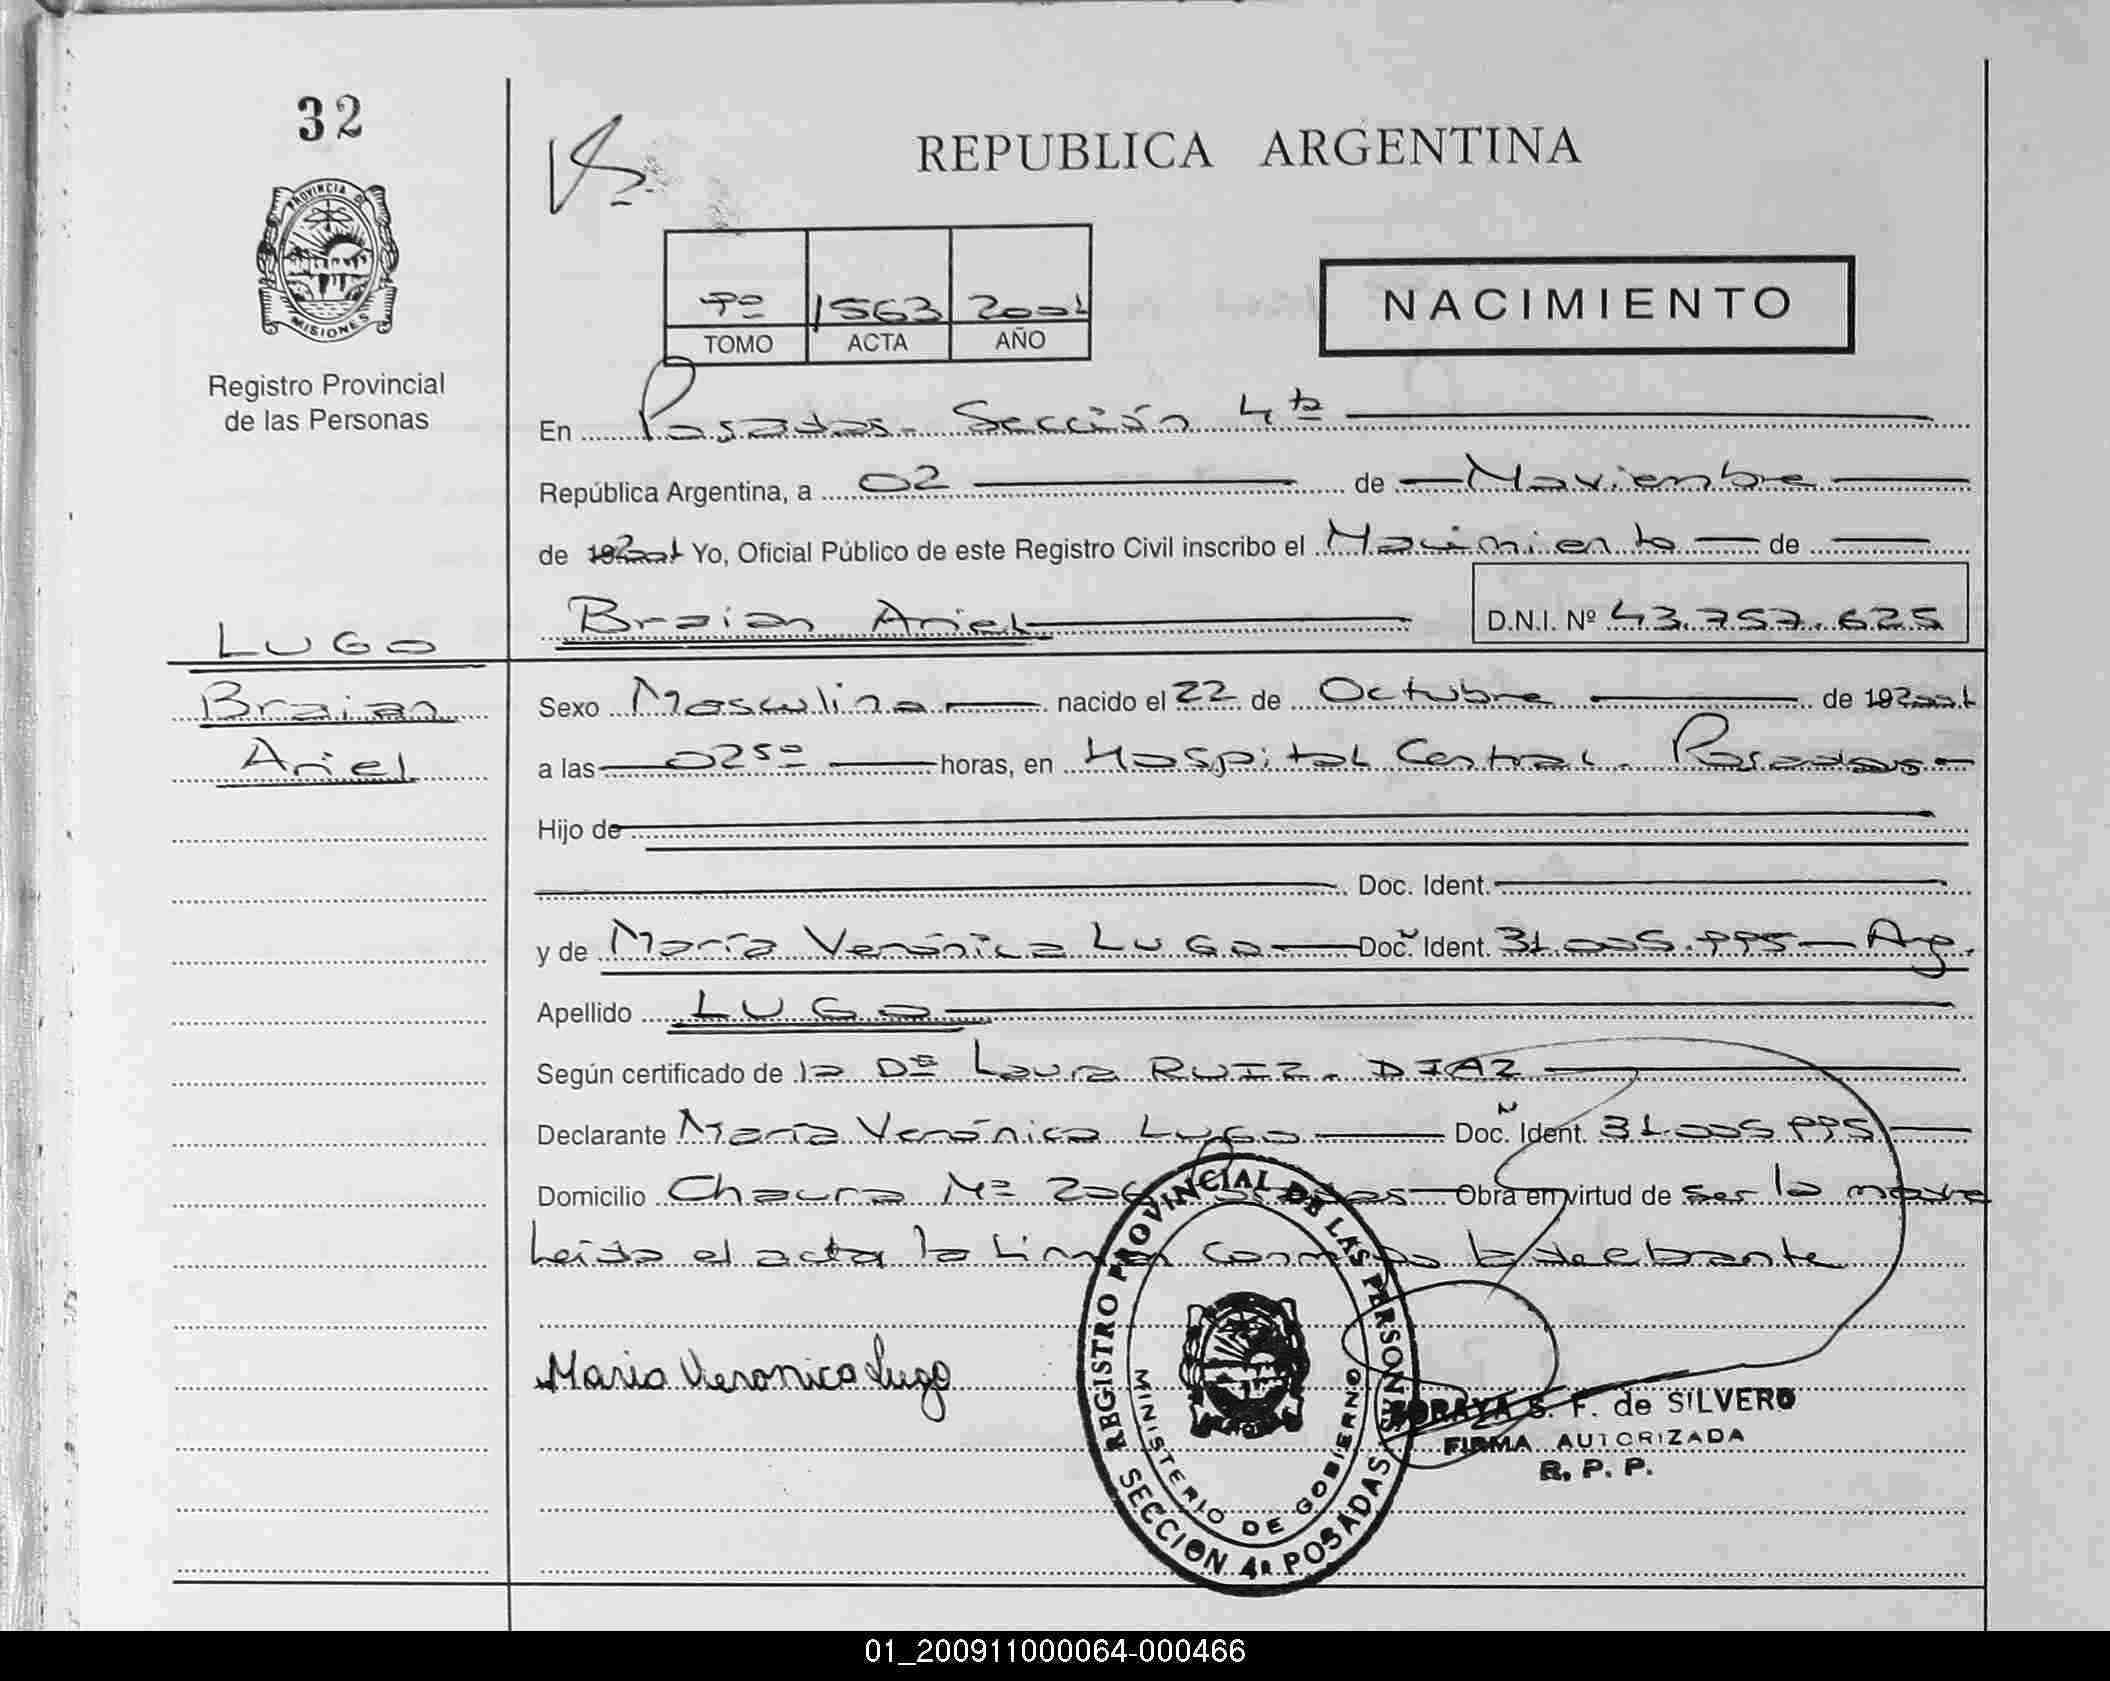 32
REPUBLICA ARGENTINA
PROVINCIA DE
MISIONES
Registro Provincial
de las Personas
NACIMIENTO
1563 2001
TOMO ACTA AÑO
En Posadas - Sección 4ta
República Argentina, a 02 de Noviembre
de 2001 Yo, Oficial Público de este Registro Civil inscribo el Nacimiento de
Braian Ariel D.N.I. Nº 43.757.625
LUGO
Braian
Ariel
Sexo Masculino nacido el 22 de Octubre de 192001
a las 0250 horas, en Hospital Central - Posadas
Hijo de
Doc. Ident.
y de María Verónica LUGO Doc. Ident. 31.005.995 Arg.
Apellido LUGO
Según certificado de la Dra Laura RUIZ - DIAZ
Declarante María Verónica Lugo Doc. Ident. 31.005.995
Domicilio Chacra Nº Obra en virtud de ser la madre
Leída el acta la firma conmigo la declarante
Maria Veronica Lugo
REGISTRO PROVINCIAL DE LAS PERSONAS
MINISTERIO DE GOBIERNO
SECCION 4a POSADAS
SORAYA S. F. de SILVERO
FIRMA AUTORIZADA
R. P. P.
01_200911000064-000466